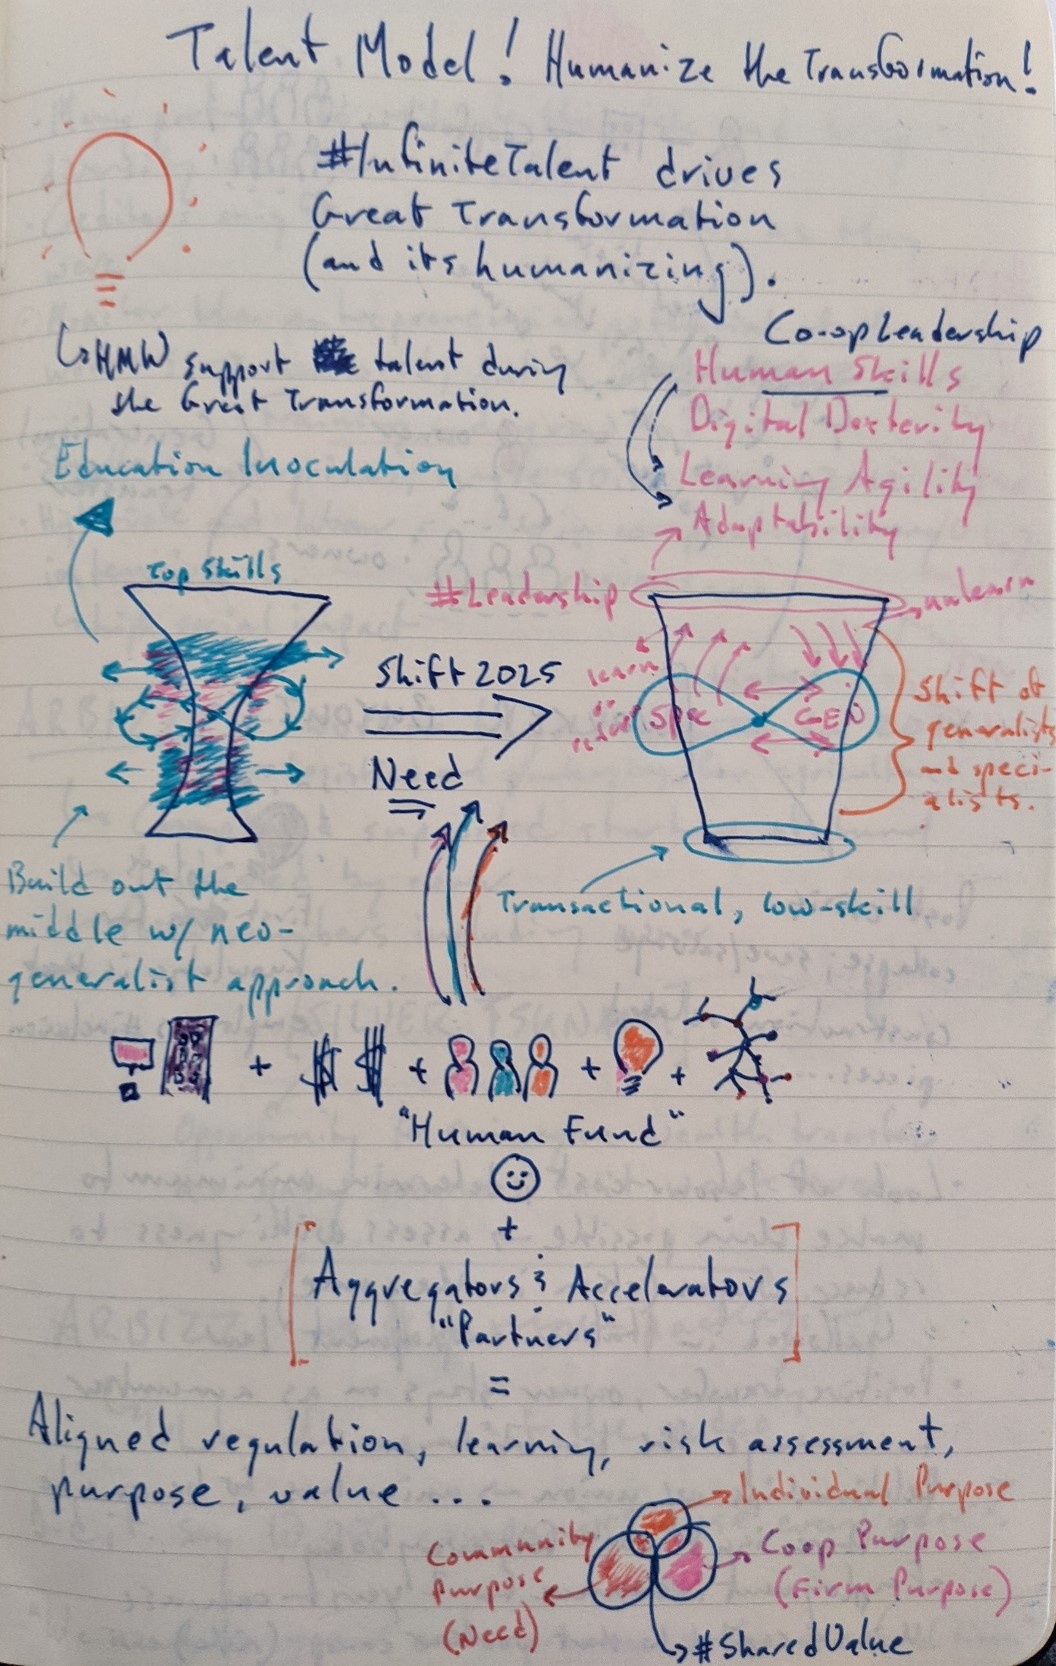 Talent Model! Humanize the Transformation!
#InfiniteTalent drives
Great Transformation
(and its humanizing).
HMW support talent during
the Great Transformation.
Co-op Leadership
Human Skills
Digital Dexterity
Learning Agility
Adaptability
Education Inoculation
Top Skills
#Leadership
unlearn
learn
Shift 2025
Need
Spec
GEN
Shift of
generalists
and speci-
alists.
Build out the
middle w/ neo-
generalist approach.
Transactional, low-skill
+ $ $ + + +
"Human Fund"
+
Aggregators & Accelerators
"Partners"
=
Aligned regulation, learning, risk assessment,
purpose, value ...
Individual Purpose
Community
Purpose
(Need)
Coop Purpose
(Firm Purpose)
#SharedValue